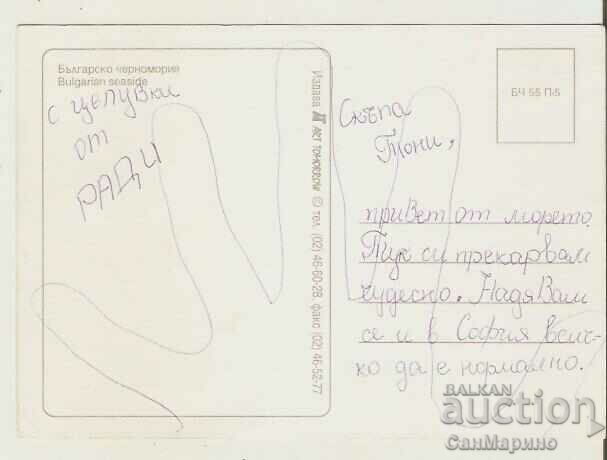 Българско черномория
Bulgarian seaside
с целувки
от
РАДИ
Издава ART TOMORROW © тел. (02) 46-60-28, факс (02) 46-52-77
БЧ 55 П-5
Скъпа
Тони,
привет от морето.
Тук си прекарвам
чудесно. Надявам
се и в София всич-
ко да е нормално.
BALKAN
auction
СанМарино